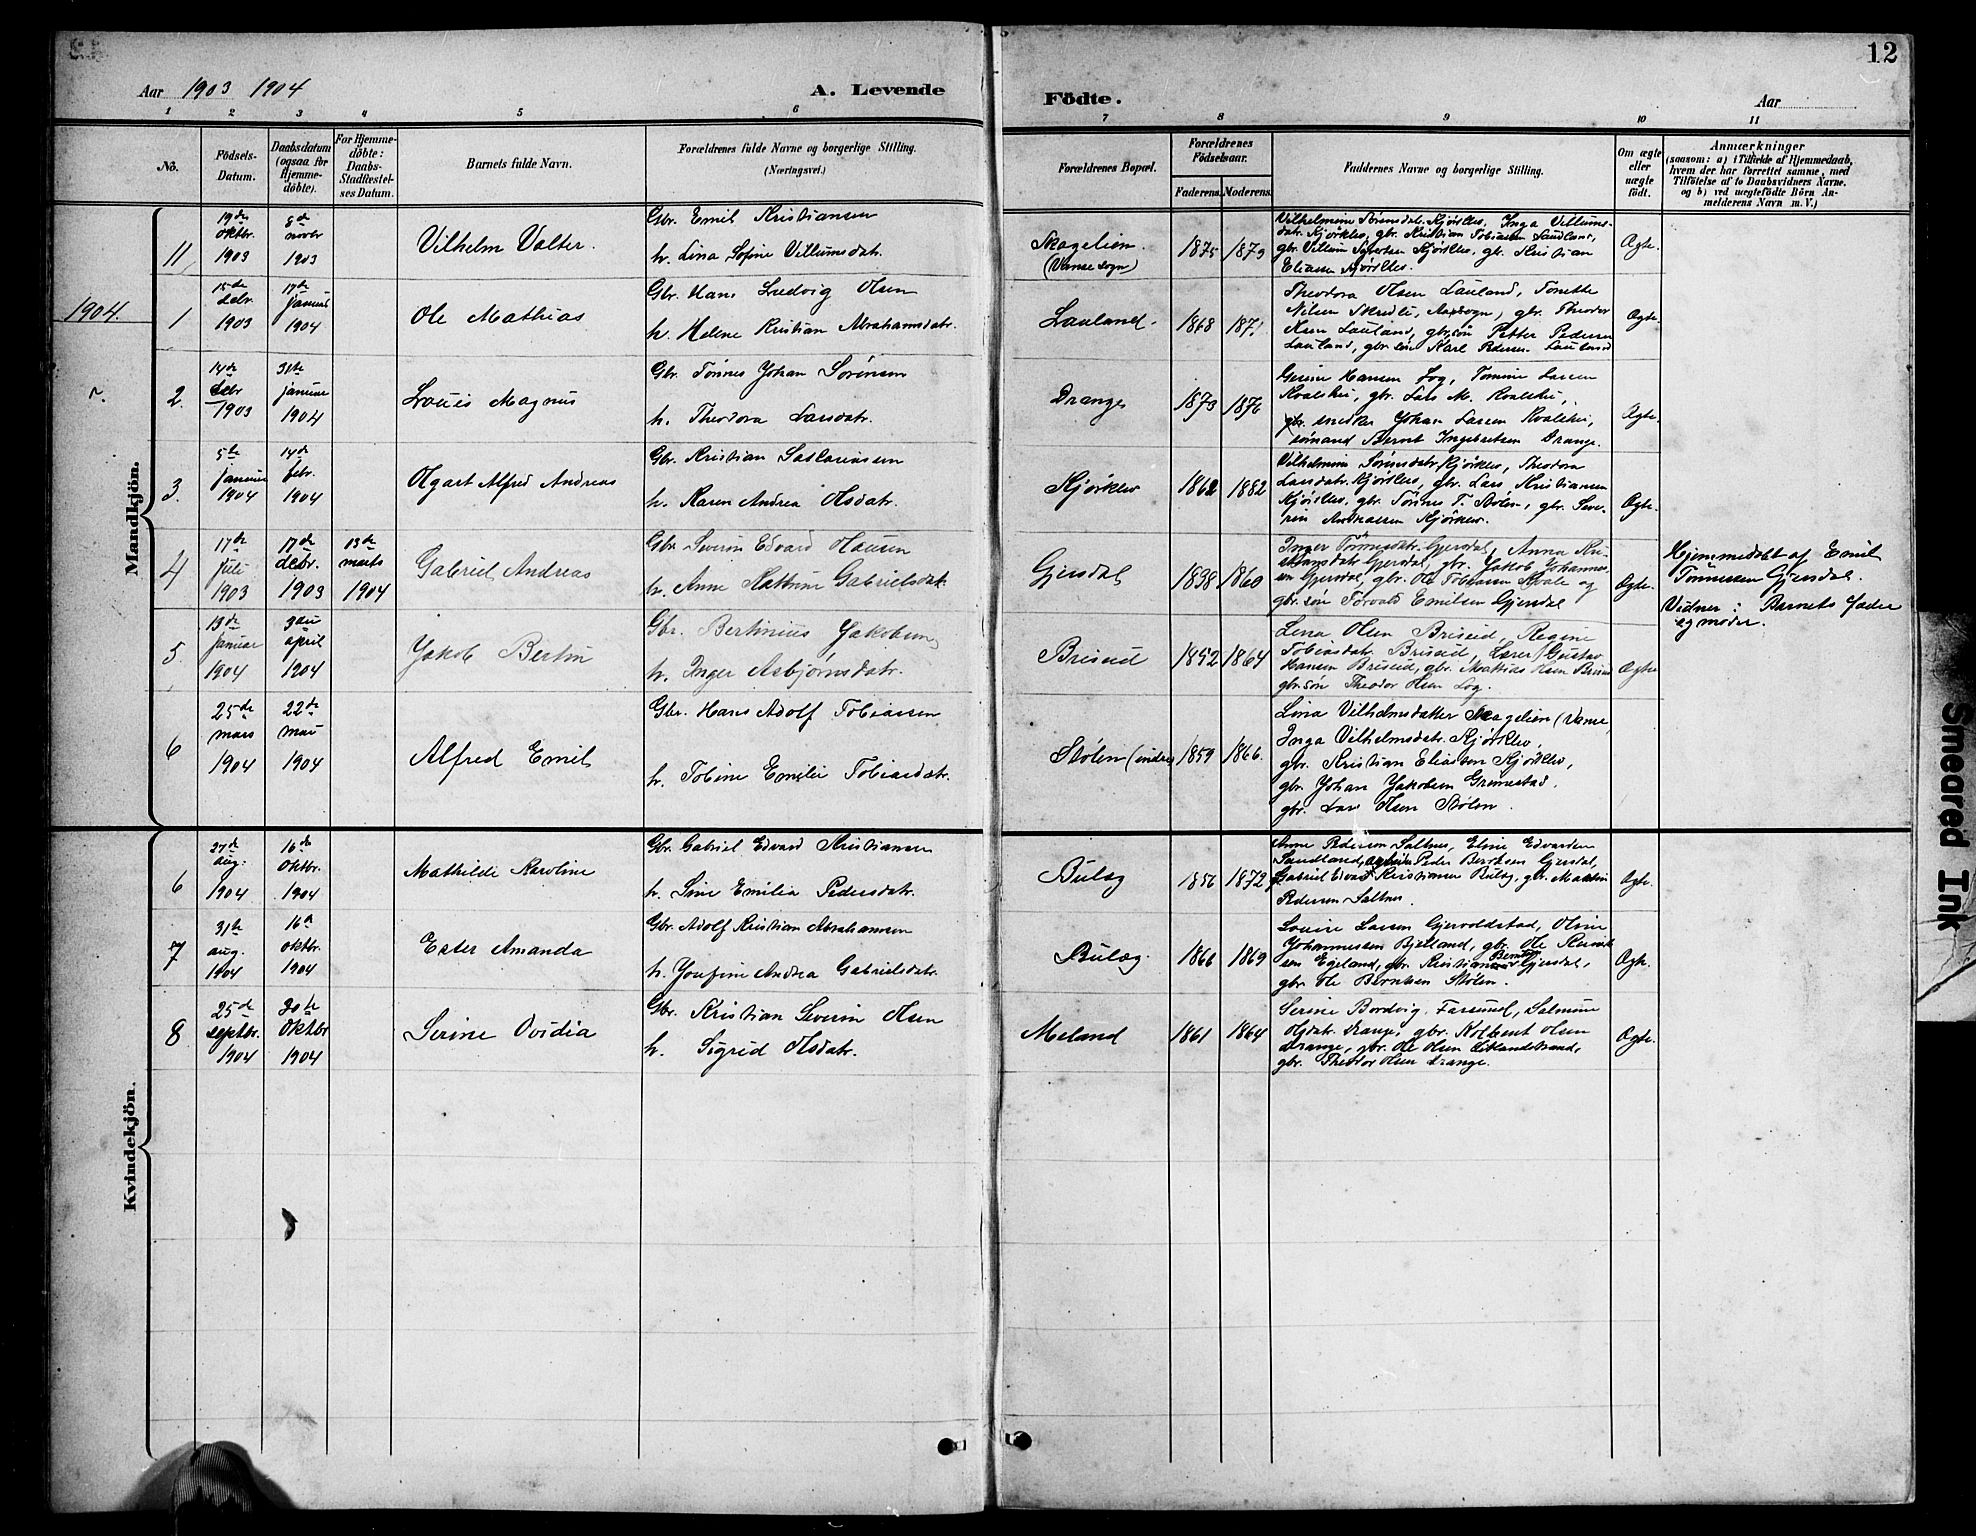 12
Aar 1903 1904
A. Levende
Födte.
Aar
1 2 3 4 5 6 7 8 9 10 11
No.
Födsels-
Datum.
Daabsdatum
(ogsaa for
Hjemme-
döbte).
For Hjemme-
döbte:
Daabs-
Stadfæstel-
ses Datum.
Barnets fulde Navn.
Forældrenes fulde Navne og borgerlige Stilling.
(Næringsvei.)
Forældrenes Bopæl.
Forældrenes
Födselsaar.
Faderens. Moderens.
Faddernes Navne og borgerlige Stilling.
Om ægte
eller
uægte
födt.
Anmærkninger
(saasom: a) i Tilfælde af Hjemmedaab,
hvem der har forrettet samme, med
Tilföielse af to Daabsvidners Navne.
og b) ved uægtefödte Börn An-
melderens Navn m. V.)
Mandkjön.
11
19de
oktbr.
1903
8de
novbr
1903
Vilhelm Valter.
Gbr. Emil Kristiansen
h. Lina Sofine Villumsdatr.
Skagelien.
(Vanse sogn)
1875 1879
Vilhelmine Sörensdatr. Kjörklev, Inga Villums-
datr. Kjörklev, gbr. Kristian Tobiassen Sandland,
gbr. Villum Syvertsen Kjörklev, gbr. Kristian
Eliassen Kjörklev.
Ægte.
1904.
1
15de
debr.
1903
17de
januar
1904
Ole Mathias
Gbr. Hans Ludvig Olsen
h. Helene Kristian Abrahamsdatr.
Lauland.
1868 1871
Theodora Olsen Lauland, Tonette
Nilsen Skredli, gbr. Theodor
Olsen Lauland, gbr. sön Petter Pedersen
Lauland, gbr. sön Karl Pedersen Lauland
Ægte.
2.
14de
debr
1903
31te
januar
1904
Louis Magnus
Gbr. Tönnes Johan Sörensen
h. Theodora Larsdatr.
Drange
1873 1876
Gesine Hansen Log, Tomine Larsen
Kvalshei, gbr. Lars M. Kvalshei,
gbr. snedker Johan Larsen Kvalshei,
sömand Bernt Ingebretsen Drange.
Ægte.
3.
5te
januar
1904
14de
febr.
1904
Olgart Alfred Andreas
Gbr. Kristian Sakariassen
h. Karen Andrea Olsdatr.
Kjörklev
1862 1882
Vilhelmine Sörensdatr. Kjörklev, Theodora
Larsdatr. Kjörklev, gbr. Lars Kristiansen
Kjörklev, gbr. Tönnes T. Stölen, gbr. Seve-
rin Andreassen Kjörklev.
Ægte.
4
17de
juli
1903
17de
debr.
1903
13de
marts
1904
Gabriel Andreas
Gbr. Severin Edvard Hansen
h. Anne Kathrine Gabrielsdatr.
Gjersdal
1838 1860
Inger Tönnesdatr. Gjersdal, Anna Kri-
stiansdatr. Gjersdal, gbr. Jakob Johannes-
sen Gjersdal, gbr. Ole Tobiassen Kvale og
gbr. sön Torvald Emilsen Gjersdal
Ægte.
Hjemmedöbt af Emil
Tönnessen Gjersdal.
Vidner: Barnets fader
og moder.
5
13de
januar
1904
3die
april
1904
Jakob Bertin
Gbr. Bertinius Jakobsen
h. Inger Asbjörnsdatr.
Briseid
1852 1864
Lena Olsen Briseid, Regine
Tobiasdatr. Briseid, Lærer Gustav
Hansen Briseid, gbr. Mathias Olsen Briseid
gbr. sön Theodor Olsen Log.
Ægte
6
25de
mars
1904
22de
mai
1904
Alfred Emil
Gbr. Hans Adolf Tobiassen
h. Tobine Emilie Tobiasdatr.
Stölen (indre)
1859 1866.
Lina Vilhelmsdatter Skagelien (Vanse)
Inga Vilhelmsdatr. Kjörklev,
gbr. Kristian Eliassen Kjörklev,
gbr. Johan Jakobsen Grimestad.
gbr. Lars Olsen Stölen.
Kvindekjön.
6
27de
aug.
1904
16de
oktbr.
1904
Mathilde Karoline
Gbr. Gabriel Edvard Kristiansen
h. Sine Emilia Pedersdatr.
Bulæg
1856 1872
Anne Pedersen Saltnes, Eline Edvardsen
Sandland, Peder Berntsen Gjersdal,
Gabriel Edvard Kristiansen Bulæg, gbr. Mathias
Pedersen Saltnes.
Ægte.
7
31te
aug.
1904
16de
oktbr.
1904
Ester Amanda
Gbr. Adolf Kristian Abrahamsen
h. Josefine Andrea Gabrielsdatr.
Bulæg.
1866 1869
Louise Larsen Gjervoldstad, Oline
Johannessen Bjelland, gbr. Ole Reinert-
sen Egeland, gbr. Kristian Berntsen Gjersdal,
gbr. Ole Berntsen Stölen.
Ægte.
8
25de
septbr.
1904
30te
oktbr
1904
Serine Ovidia
Gbr. Kristian Severin Olsen
h. Sigrid Olsdatr.
Meland
1861 1864
Serine Bordvig, Farsund, Salmine
Olsdatr. Drange, gbr. Kolbent Olsen
Drange, gbr. Ole Olsen Eiklandstrand,
gbr. Theodor Olsen Drange.
Ægte.
Smeared Ink